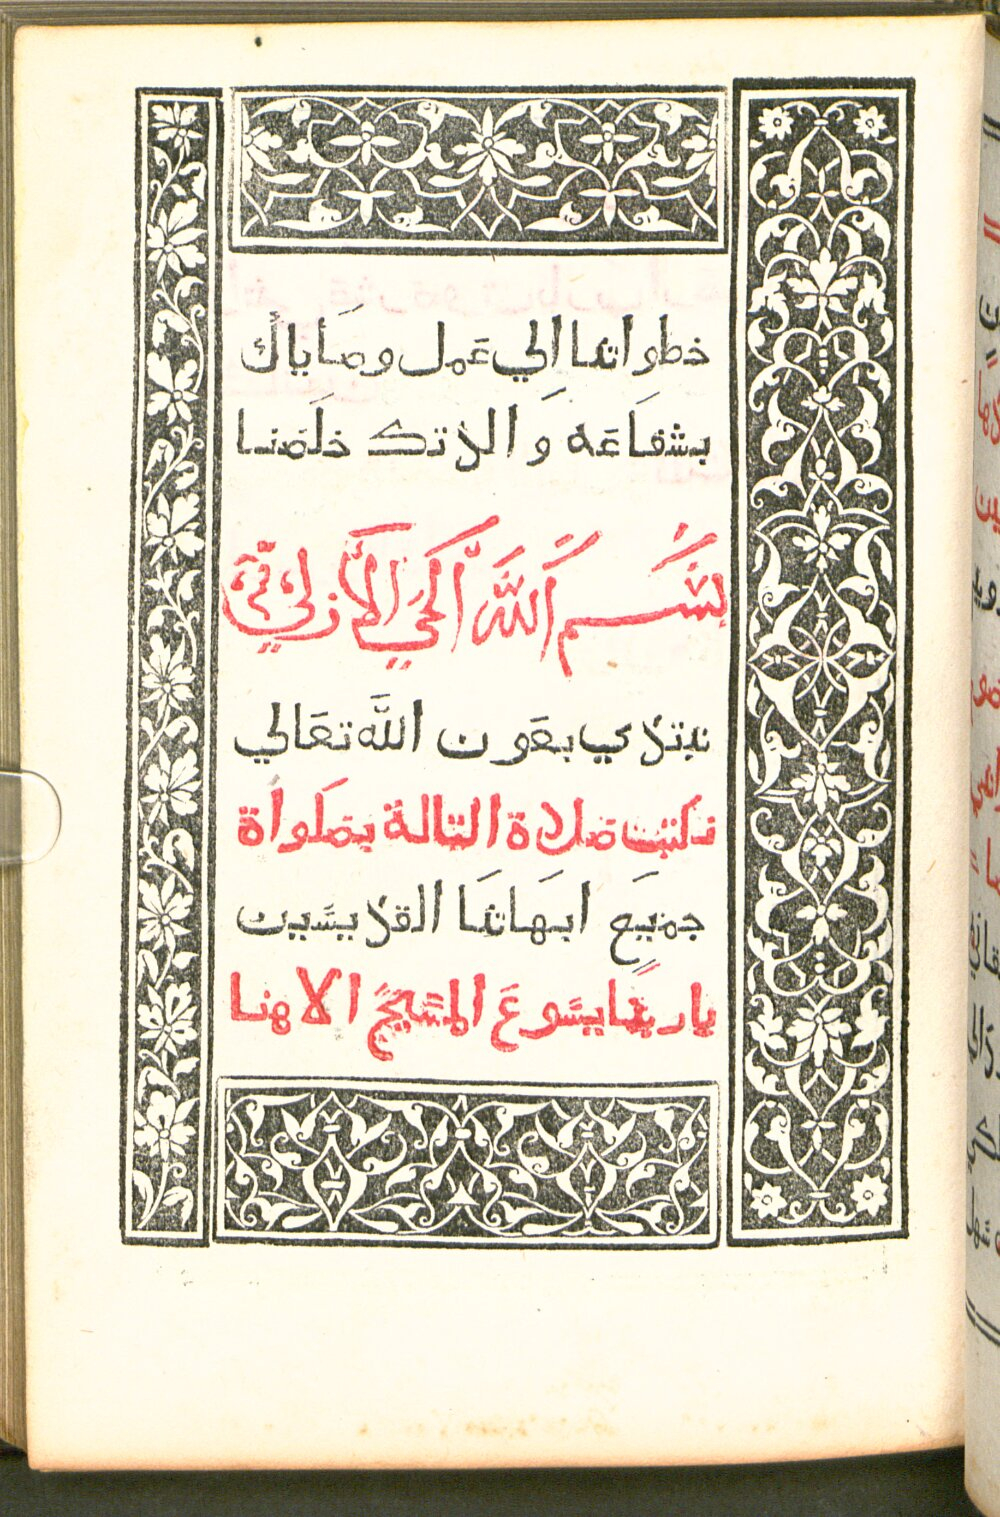 خطواتنا الي عمل وصاياك
بشفاعه والدتك خلصنا
بسم الله الحي الازلي
نبتدي بعون الله تعالي
نكتب صلاة التالة بصلواة
جميع ابهاتنا القديسين
يا ربنا يسوع المسيح الاهنا